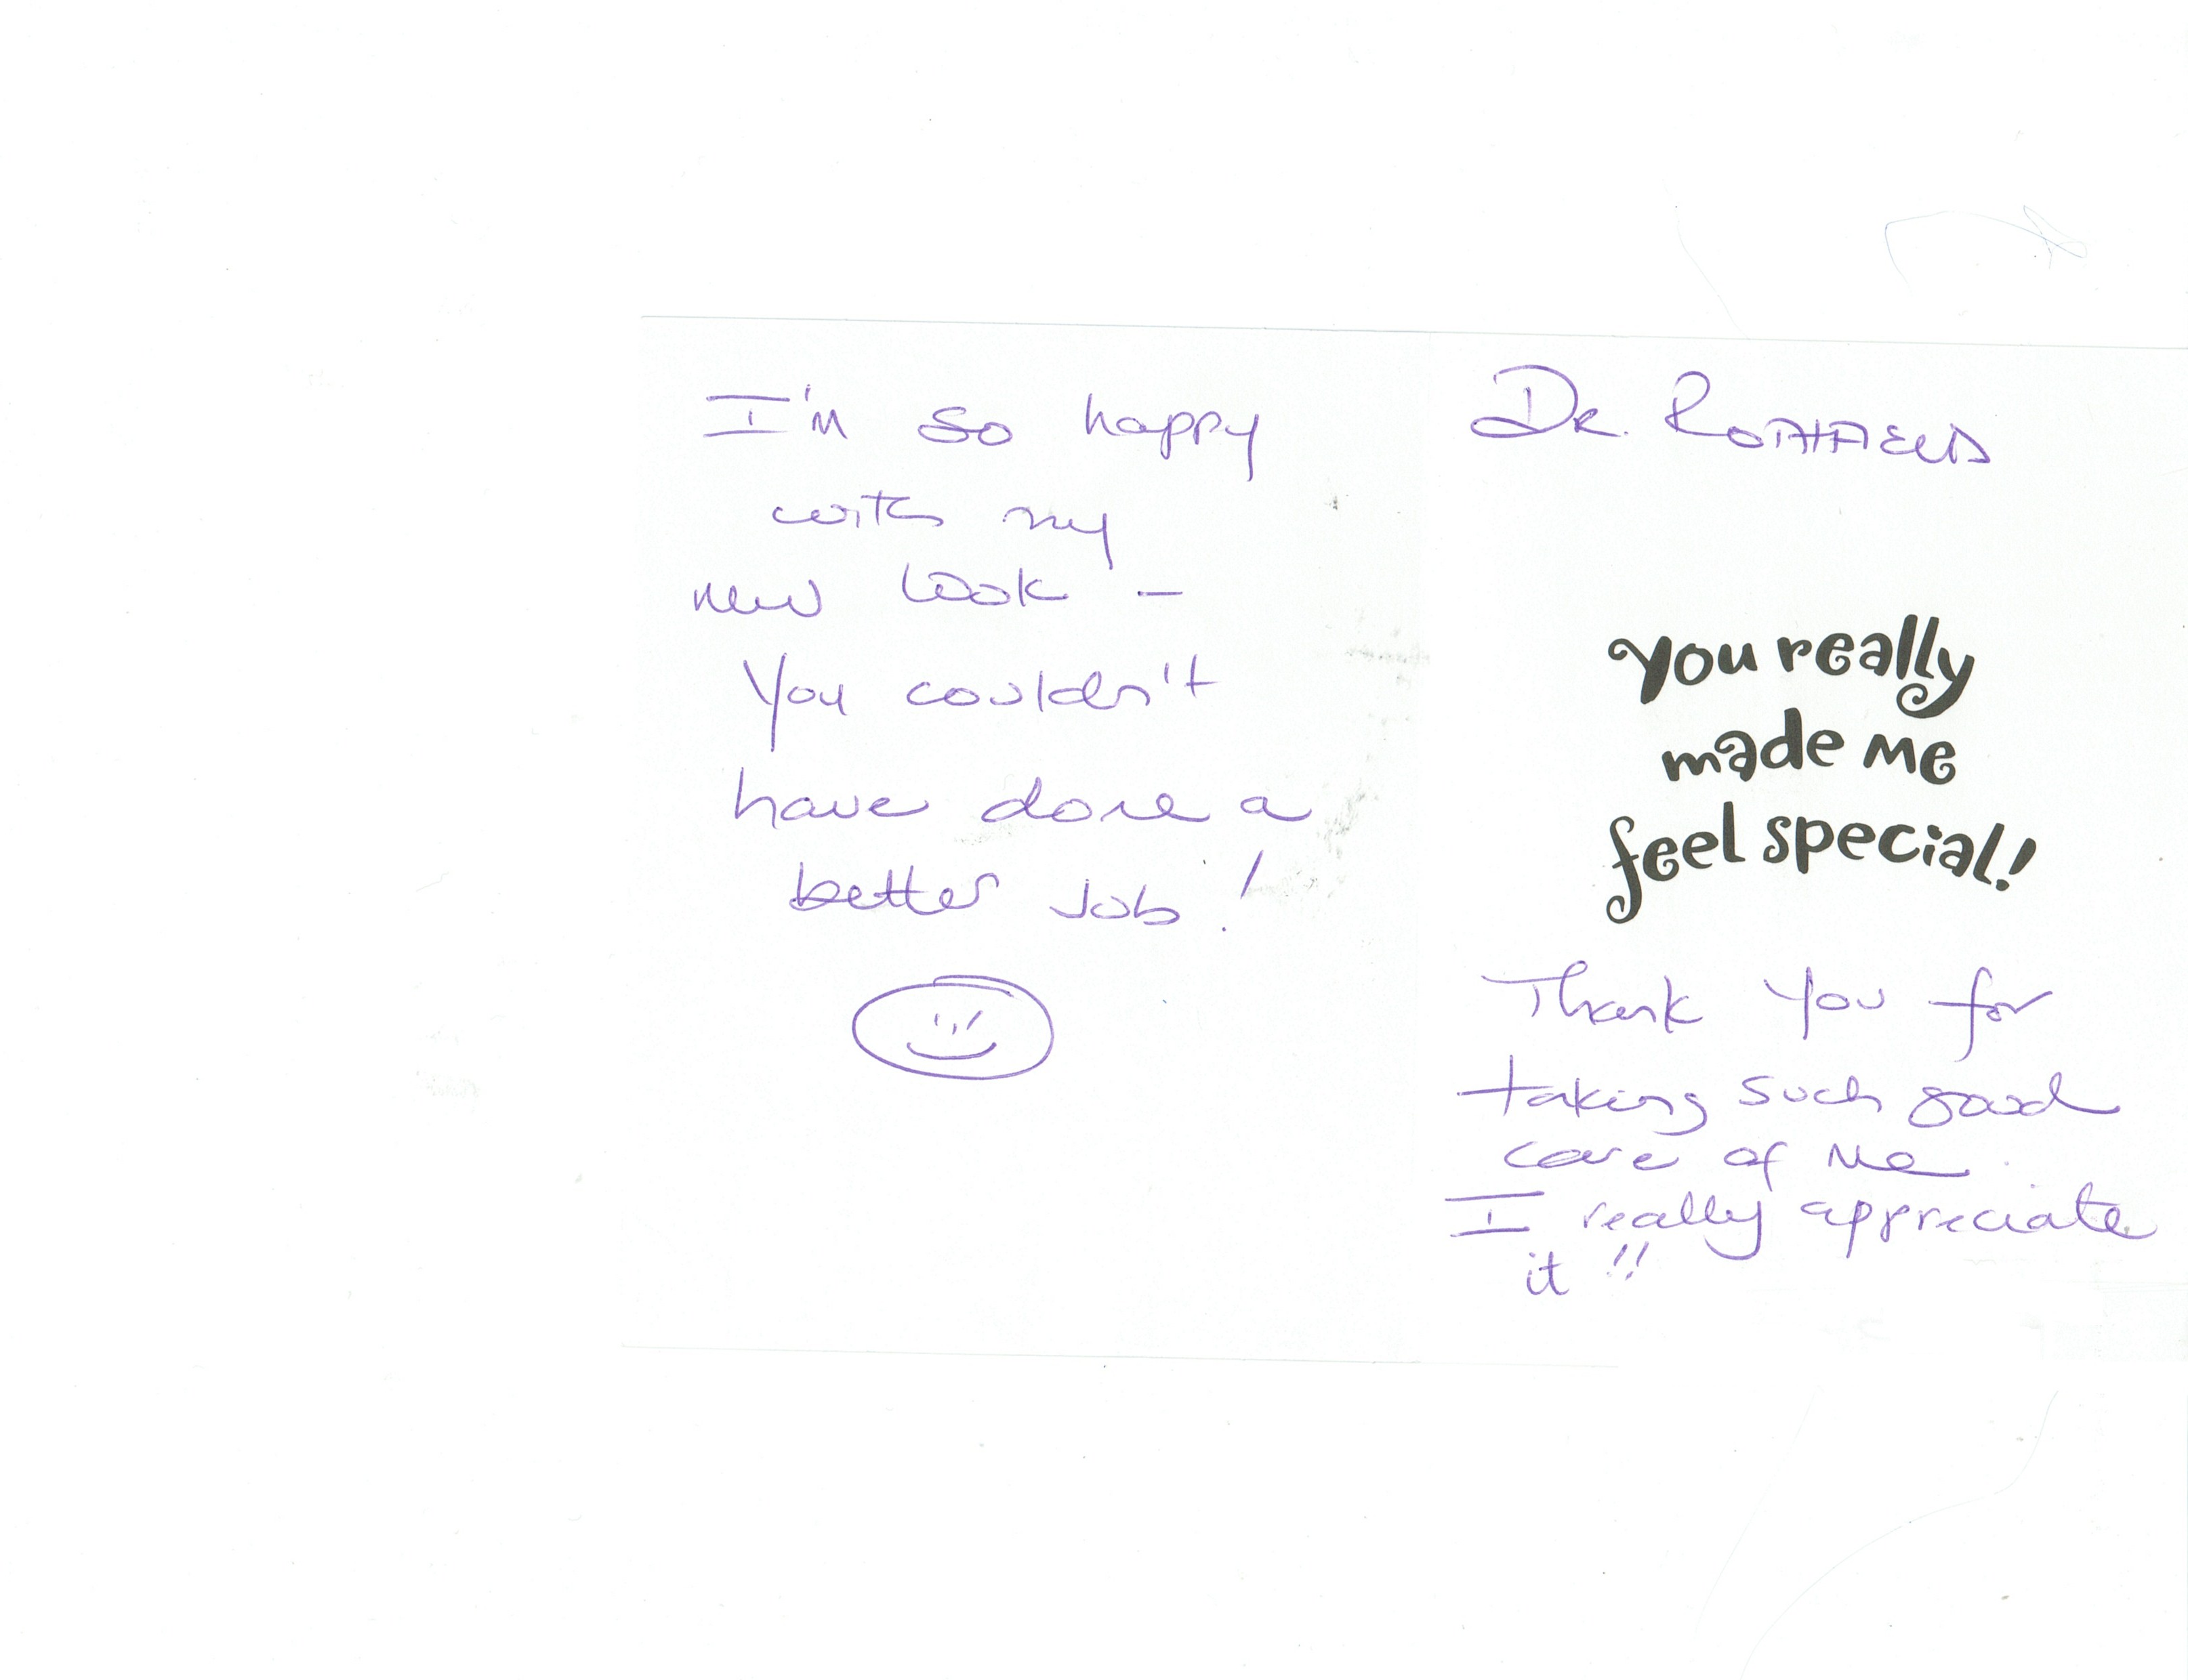 I'm so happy
with my
new look -
You couldn't
have done a
better Job!
Dr. Rothfield
you really
made me
feel special!
Thank you for
taking such good
care of me.
I really appreciate
it!!